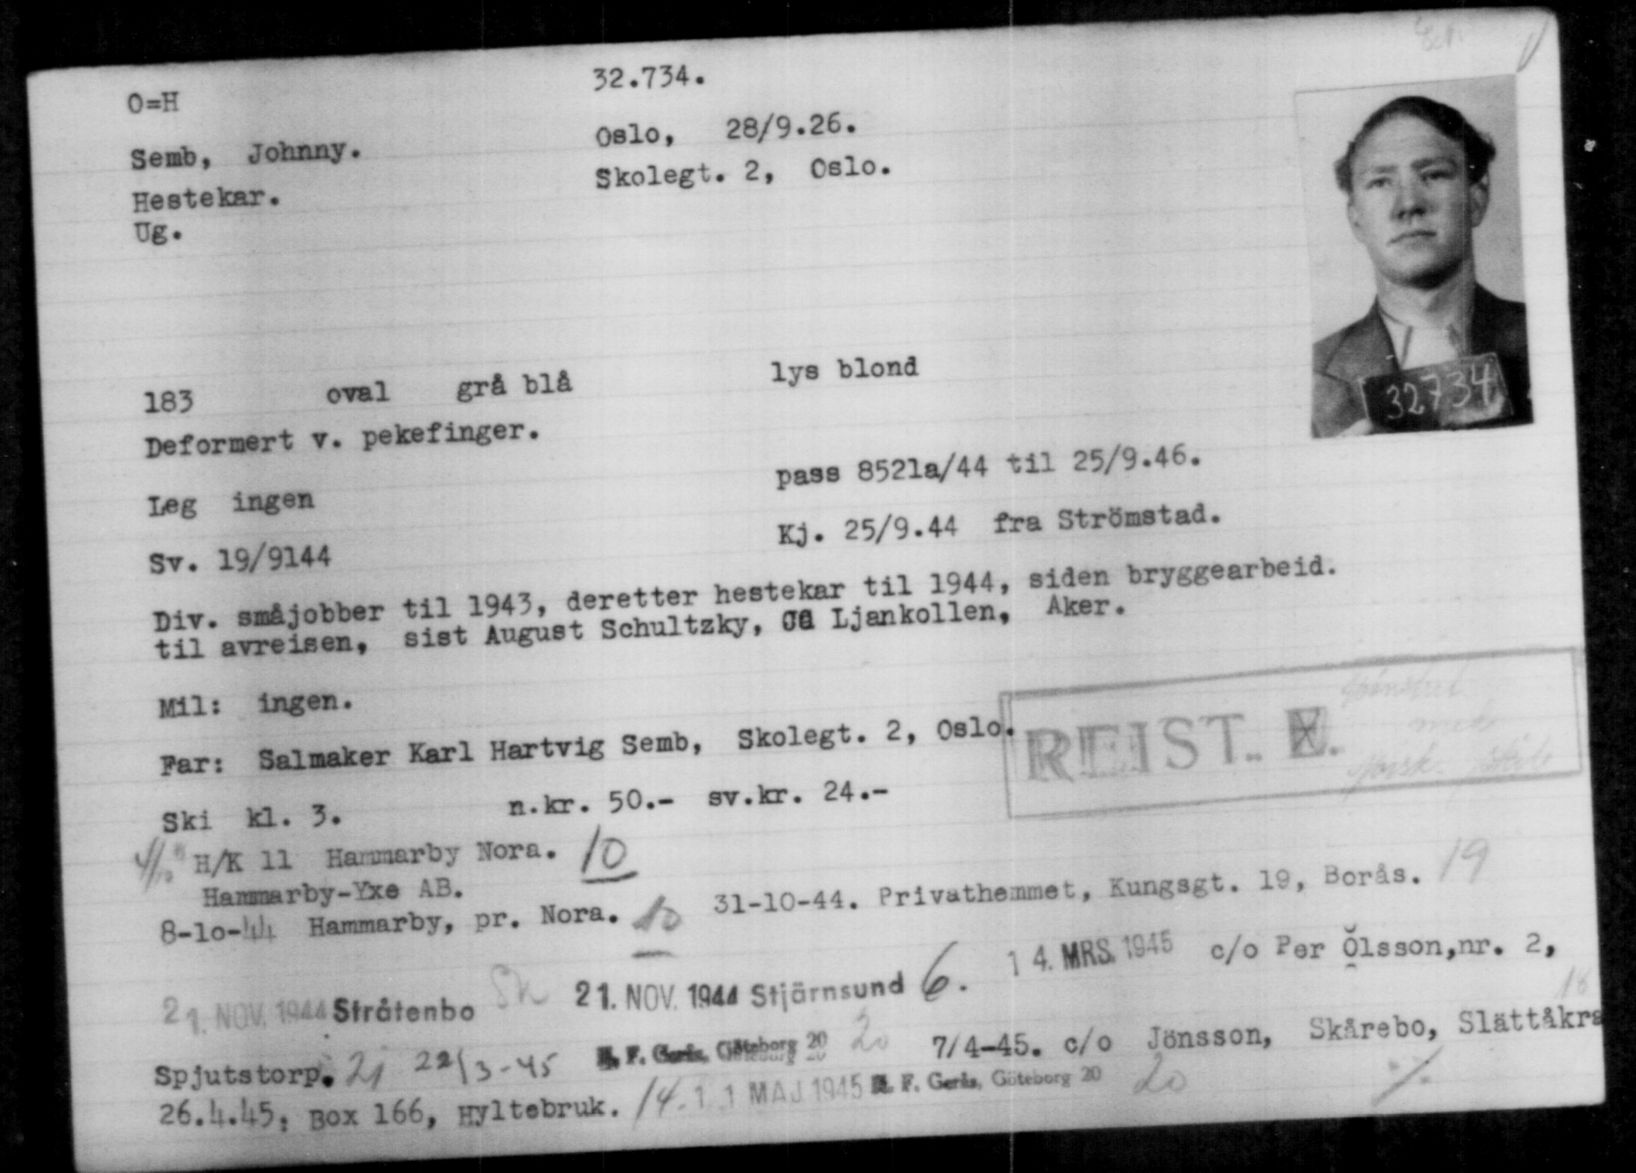 32.734.
O=H
Semb, Johnny.
Oslo, 28/9.26.
Hestekar.
Skolegt. 2, Oslo.
Ug.
32734
183 oval grå blå lys blond
Deformert v. pekefinger.
pass 8521a/44 til 25/9.46.
Leg ingen
Kj. 25/9.44 fra Strömstad.
Sv. 19/9144
Div. småjobber til 1943, deretter hestekar til 1944, siden bryggearbeid.
til avreisen, sist August Schultzky, Ljankollen, Aker.
Mil: ingen.
Far: Salmaker Karl Hartvig Semb, Skolegt. 2, Oslo.
REIST.
Ski kl. 3. n.kr. 50.- sv.kr. 24.-
4/10 H/K 11 Hammarby Nora. 10
Hammarby-Yxe AB.
8-10-44 Hammarby, pr. Nora. 10 31-10-44. Privathemmet, Kungsgt. 19, Borås. 19
21. NOV. 1944 Stråtenbo 21. NOV. 1944 Stjärnsund 6. 14. MRS. 1945 c/o Per Olsson,nr. 2,
Spjutstorp. 21 22/3-45 F. Gerås, Göteborg 20 20 7/4-45. c/o Jönsson, Skårebo, Slättåkra 18
26.4.45: Box 166, Hyltebruk. 14. 11 MAJ 1945 F. Gerås, Göteborg 20 20